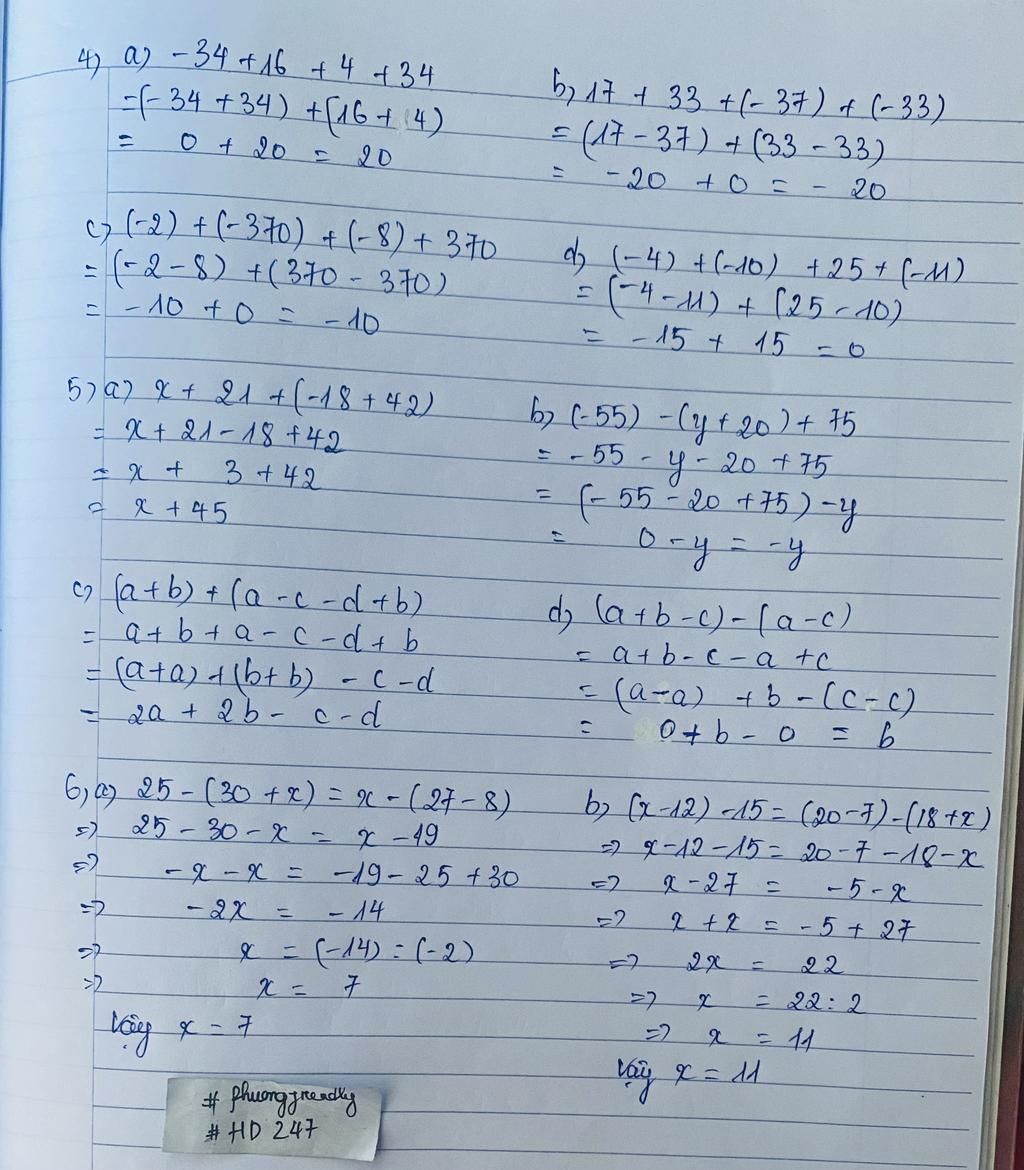 4) a) -34 + 16 + 4 + 34
= (-34 + 34) + (16 + 4)
= 0 + 20 = 20
b) 17 + 33 + (-37) + (-33)
= (17 - 37) + (33 - 33)
= -20 + 0 = - 20
c) (-2) + (-370) + (-8) + 370
= (-2 - 8) + (370 - 370)
= -10 + 0 = -10
d) (-4) + (-10) + 25 + (-11)
= (-4 - 11) + (25 - 10)
= -15 + 15 = 0
5) a) x + 21 + (-18 + 42)
= x + 21 - 18 + 42
= x + 3 + 42
= x + 45
b) (-55) - (y + 20) + 75
= -55 - y - 20 + 75
= (-55 - 20 + 75) - y
= 0 - y = -y
c) (a + b) + (a - c - d + b)
= a + b + a - c - d + b
= (a + a) + (b + b) - c - d
= 2a + 2b - c - d
d) (a + b - c) - (a - c)
= a + b - c - a + c
= (a - a) + b - (c - c)
= 0 + b - 0 = b
6, a) 25 - (30 + x) = x - (27 - 8)
=> 25 - 30 - x = x - 19
=> -x - x = -19 - 25 + 30
=> -2x = -14
=> x = (-14) : (-2)
=> x = 7
Vậy x = 7
b) (x - 12) - 15 = (20 - 7) - (18 + x)
=> x - 12 - 15 = 20 - 7 - 18 - x
=> x - 27 = -5 - x
=> x + x = -5 + 27
=> 2x = 22
=> x = 22 : 2
=> x = 11
Vậy x = 11
# HD 247